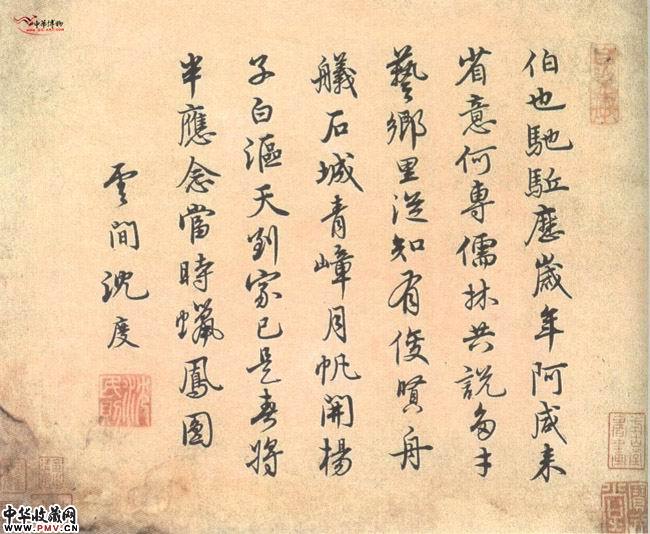 伯也馳駈歷歲年阿咸来
省意何專儒林共說多才
藝鄉里從知有俊賢舟
艤石城青嶂月帆開楊
子白漚天到家已是春将
半應念當時蠟鳳圓
雲間沈度
中华收藏网
www.PMV.CN